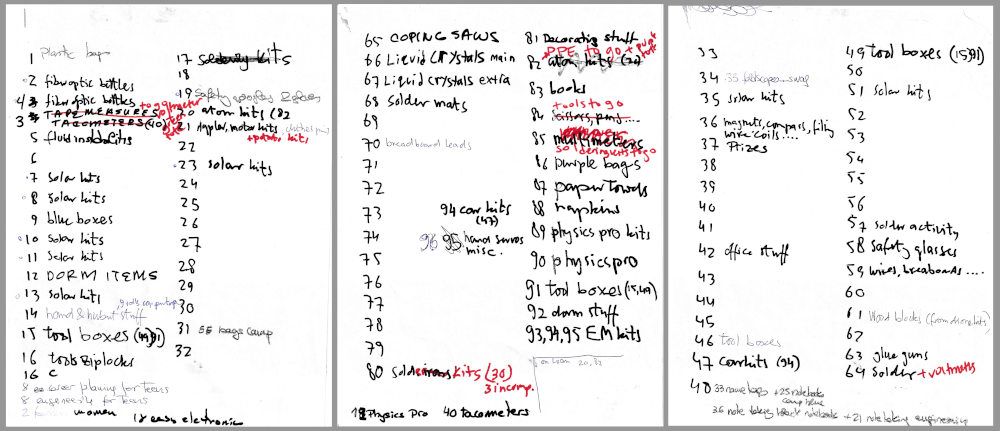 1 plastic bags
2 fiberoptic bottles
4 3 fiberoptic bottles
3 TAPE MEASURES
TACOMETERS (40)
5 fluid
6
7 solar kits
8 solar kits
9 blue boxes
10 Solar kits
11 Solar kits
12 DORM ITEMS
13 solar kits
14 hand & hubut stuff
15 tool boxes (49,91)
16 tools Ziplocks
16 C
8 career planing for Teens
8 engineering for Teens
2
women
17 kits
18
19 safety
20 atom kits (82
21 motor kits,
+ potato kits
22
23 solar kits
24
25
26
27
28
29
30
31 55 bags camp
32
18 easy electronics
65 COPING SAWS
66 Liquid CRYSTALS main
67 Liquid crystals extra
68 Solder mats
69
70 breadboard leads
71
72
73
74
75
76
77
78
79
80 KITS (30)
3 incomp.
94 car kits
(47)
95 hand
misc.
81 Decorating stuff
PPE to go +
82 atom kits (20)
83 books
tools to go
84 scissors, pens....
85 multimeters
soldering kits to go
86 purple bags
87 paper towels
88 napkins
89 physics pro kits
90 physics pro
91 tool boxes (15,49)
92 dorm stuff
93, 94, 95 EM kits
on loan 20, 82
Physics Pro 40 tacometers
33
34
35 solar kits
36 magnets, compass, filing
wire coils....
37 Prizes
38
39
40
41
42 office stuff
43
44
45
46 tool boxes
47 car kits (94)
48 33 name tags + 25 notebooks
36 note taking black notebooks + 21 note taking engineering
49 tool boxes (15,91)
50
51 solar kits
52
53
54
55
56
57 solder activity
58 safety glasses
59 wires, breaboards ....
60
61 Wood blocks (from drone kits)
62
63 glue guns
64 Solder +